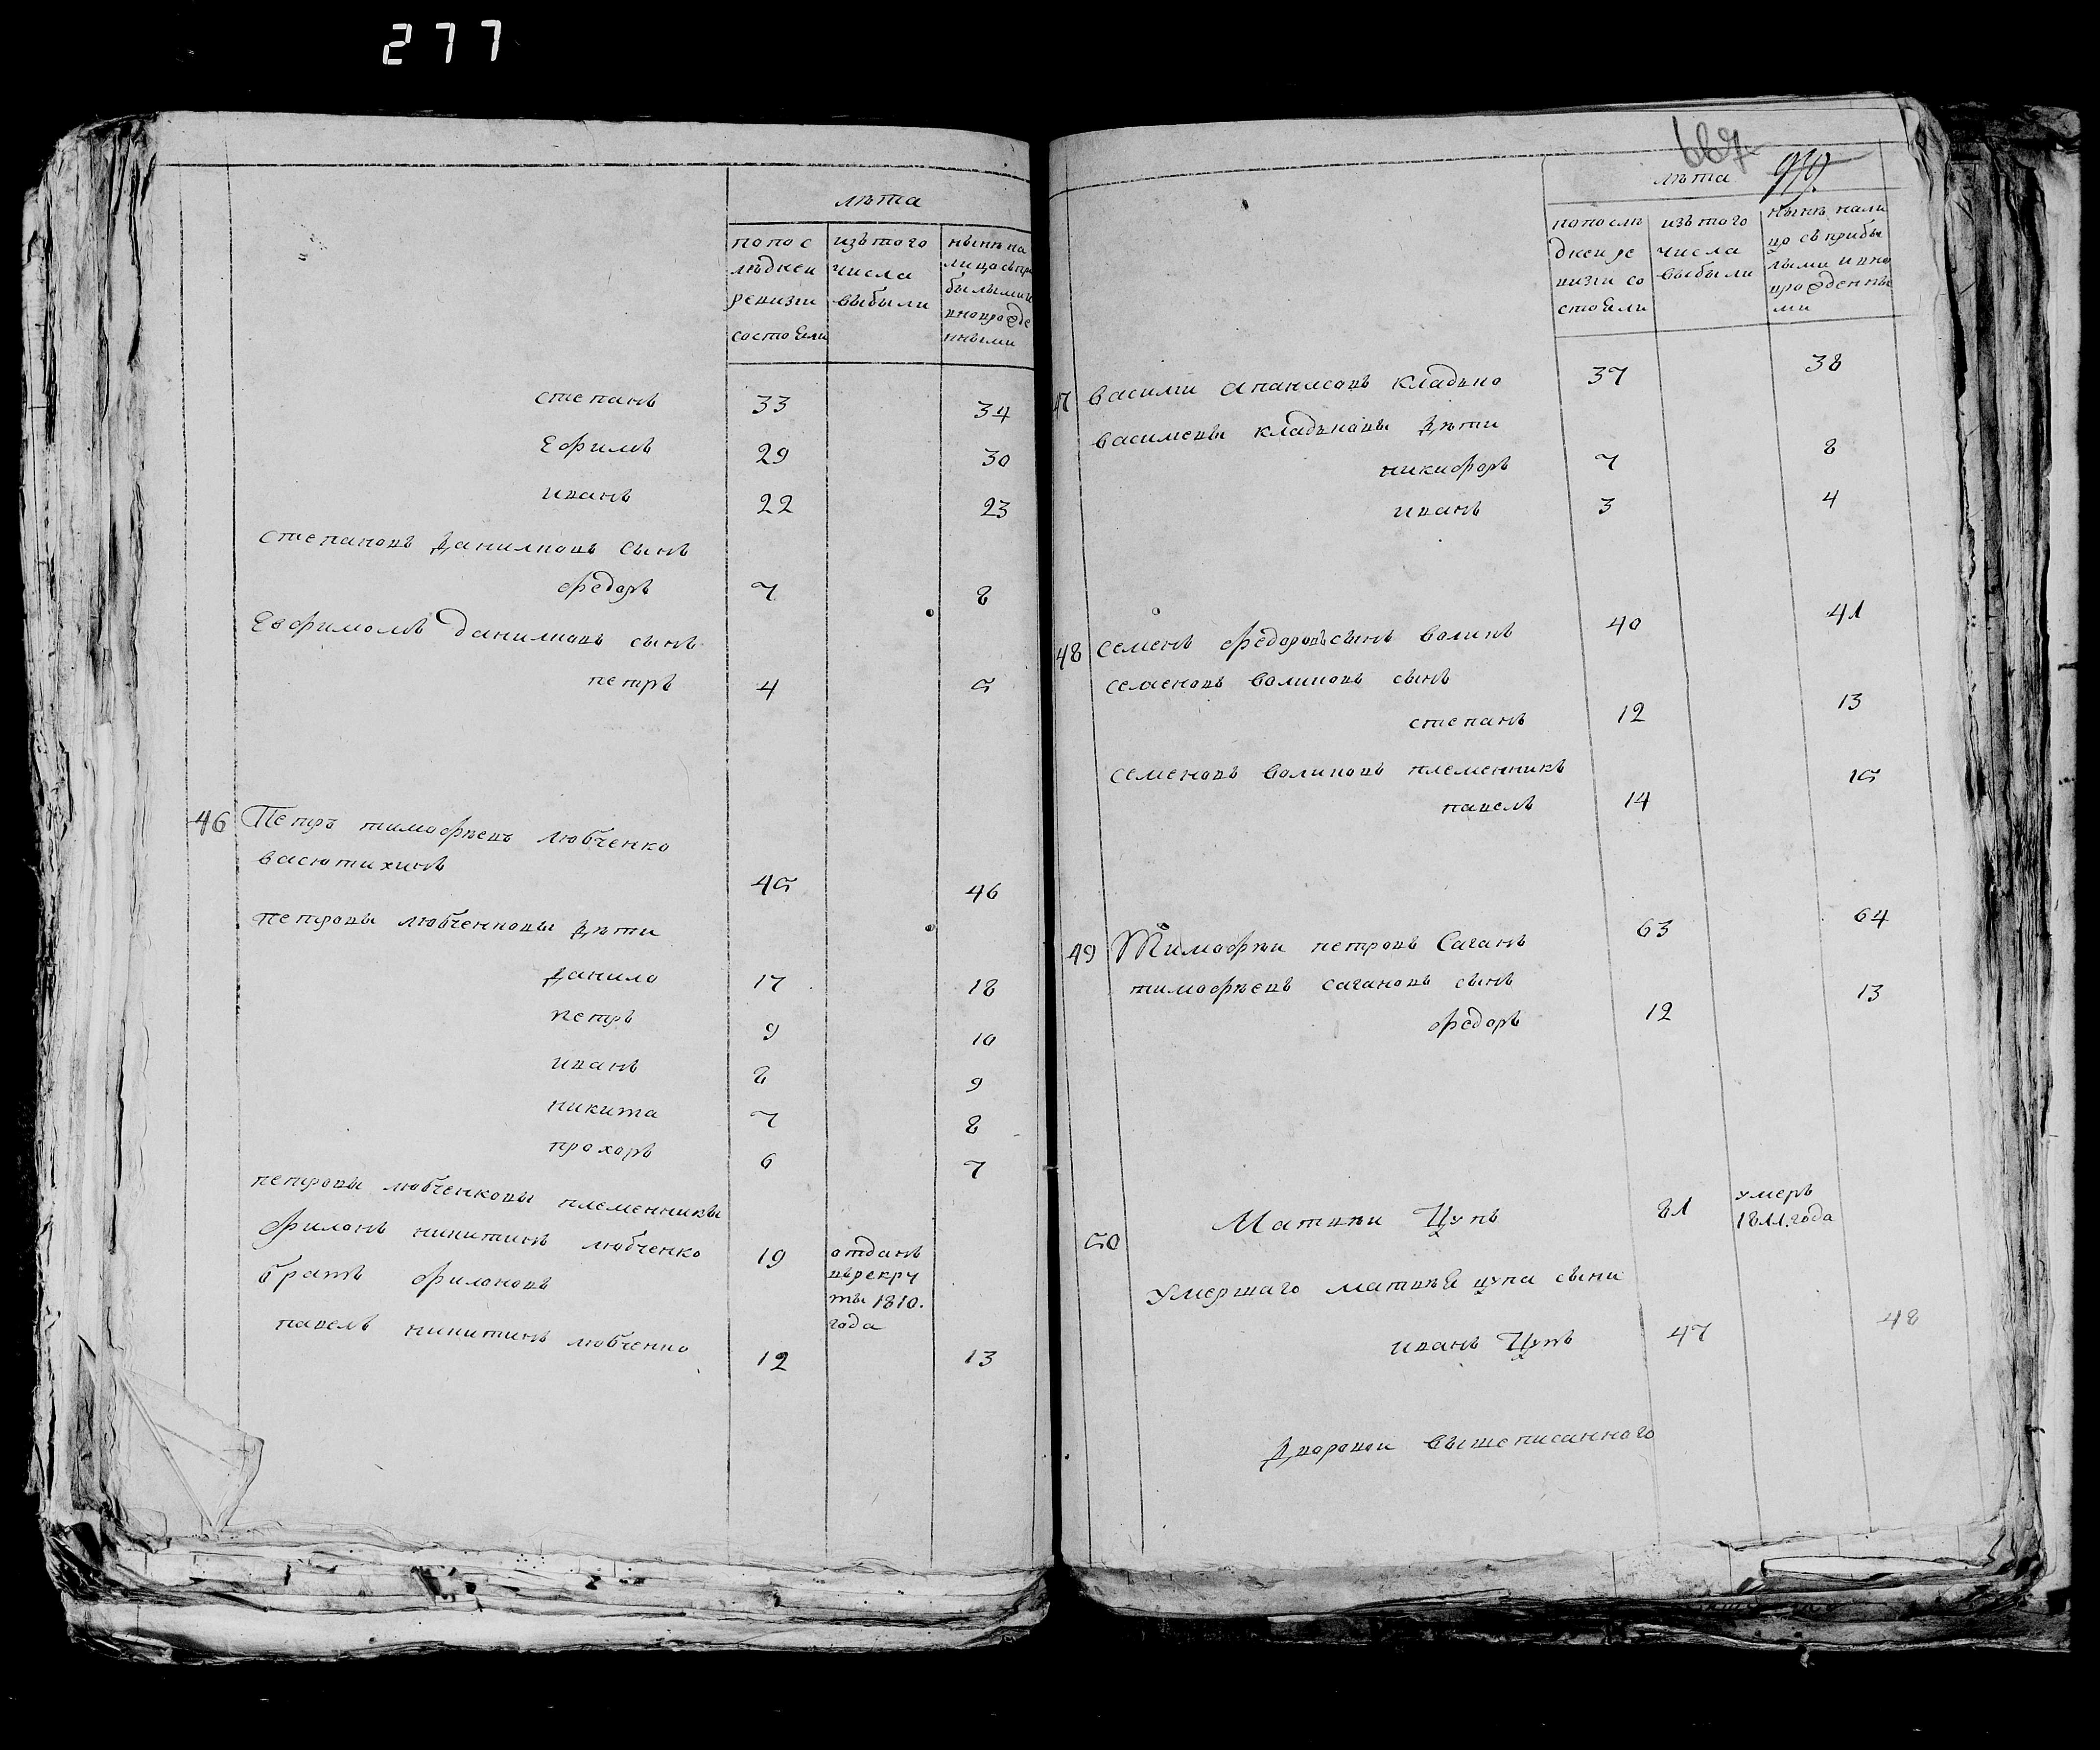 277
лѣта
по пос
лѣдней
ревизіи
состояли
изъ того
числа
выбыли
нынѣ на
лицо съ при
былыми и
вновь рожде
нными
степанъ 33 34
Ефимъ 29 30
иванъ 22 23
степановъ Даниловъ сынъ
федоръ 7 8
Евфимовъ даниловъ сынъ
петръ 4 5
46 Петръ тимофѣевъ любченко
васютихинъ 45 46
петровы любченковы дѣти
данило 17 18
петръ 9 10
иванъ 8 9
никита 7 8
прохоръ 6 7
петровы любченковы племенники
филонъ никитинъ любченко 19 отданъ
въ рекру
ты 1810.
года
братъ филоновъ
павелъ никитинъ любченко 12 13
667
лѣта
по послѣ
дней ре
визіи со
стояли
изъ того
числа
выбыли
нынѣ нали
цо съ прибы
лыми и вно
врожденны
ми
47 василій Апанасовъ кладько 37 38
василіевы кладьковы дѣти
никифоръ 7 8
иванъ 3 4
48 семенъ федоровъ сынъ воликъ 40 41
семеновъ воликовъ сынъ
степанъ 12 13
семеновъ воликовъ племенникъ
павелъ 14 15
49 Тимофѣй петровъ Саганъ 63 64
тимофѣевъ сагановъ сынъ
федоръ 12 13
50 Матвѣй Цупъ 81 умеръ
1811. года
умершаго матвѣя цупа сынъ
иванъ Цупъ 47 48
Дворовой вышеписанного